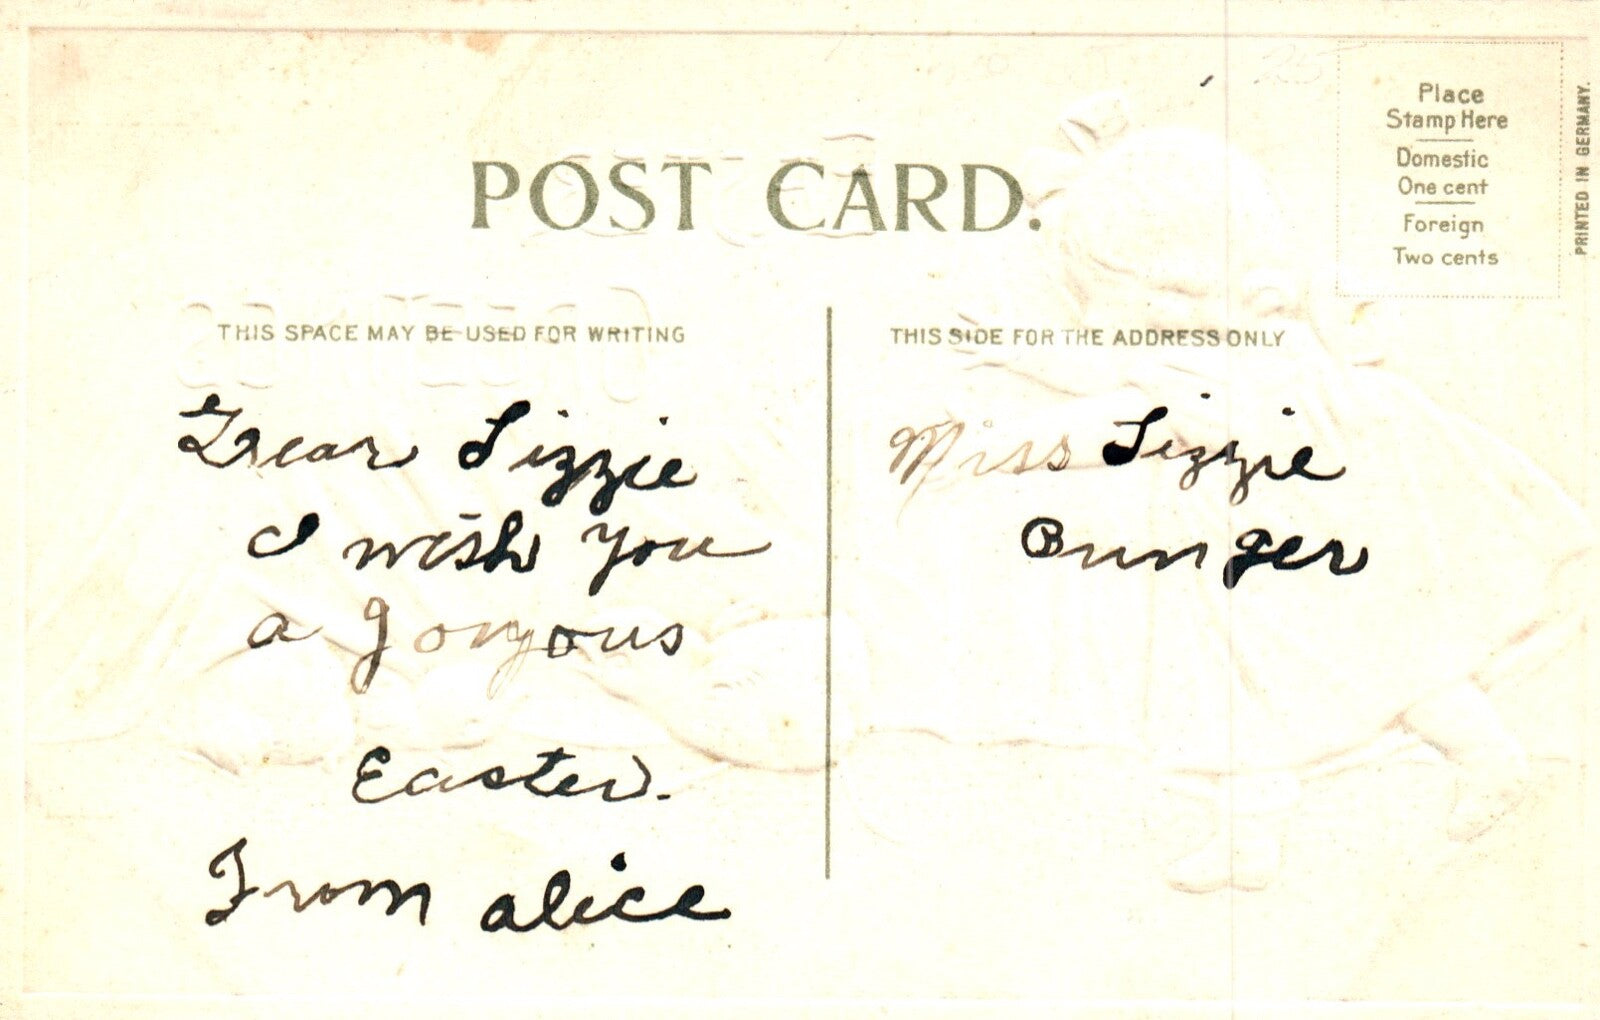 POST CARD.
Place
Stamp Here
Domestic
One cent
Foreign
Two cents
PRINTED IN GERMANY.
THIS SPACE MAY BE USED FOR WRITING
Dear Lizzie
I wish you
a gorgous
Easter.
From alice
THIS SIDE FOR THE ADDRESS ONLY
Miss Lizzie
Bunger
25